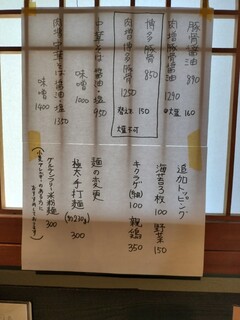 豚骨醤油 890
肉増豚骨醤油 1290
中太麺 160
博多豚骨 850
肉増博多豚骨 1250
替え玉 150
大盛不可
中華そば 醤油 塩 950
味噌 1000
肉増中華そば 醤油 塩 1350
味噌 1400
追加トッピング
海苔3枚 100 野菜 150
キクラゲ(細) 100 親鶏 350
麺の変更
極太手打麺(約230g) 300
グルテンフリー米粉麺 300